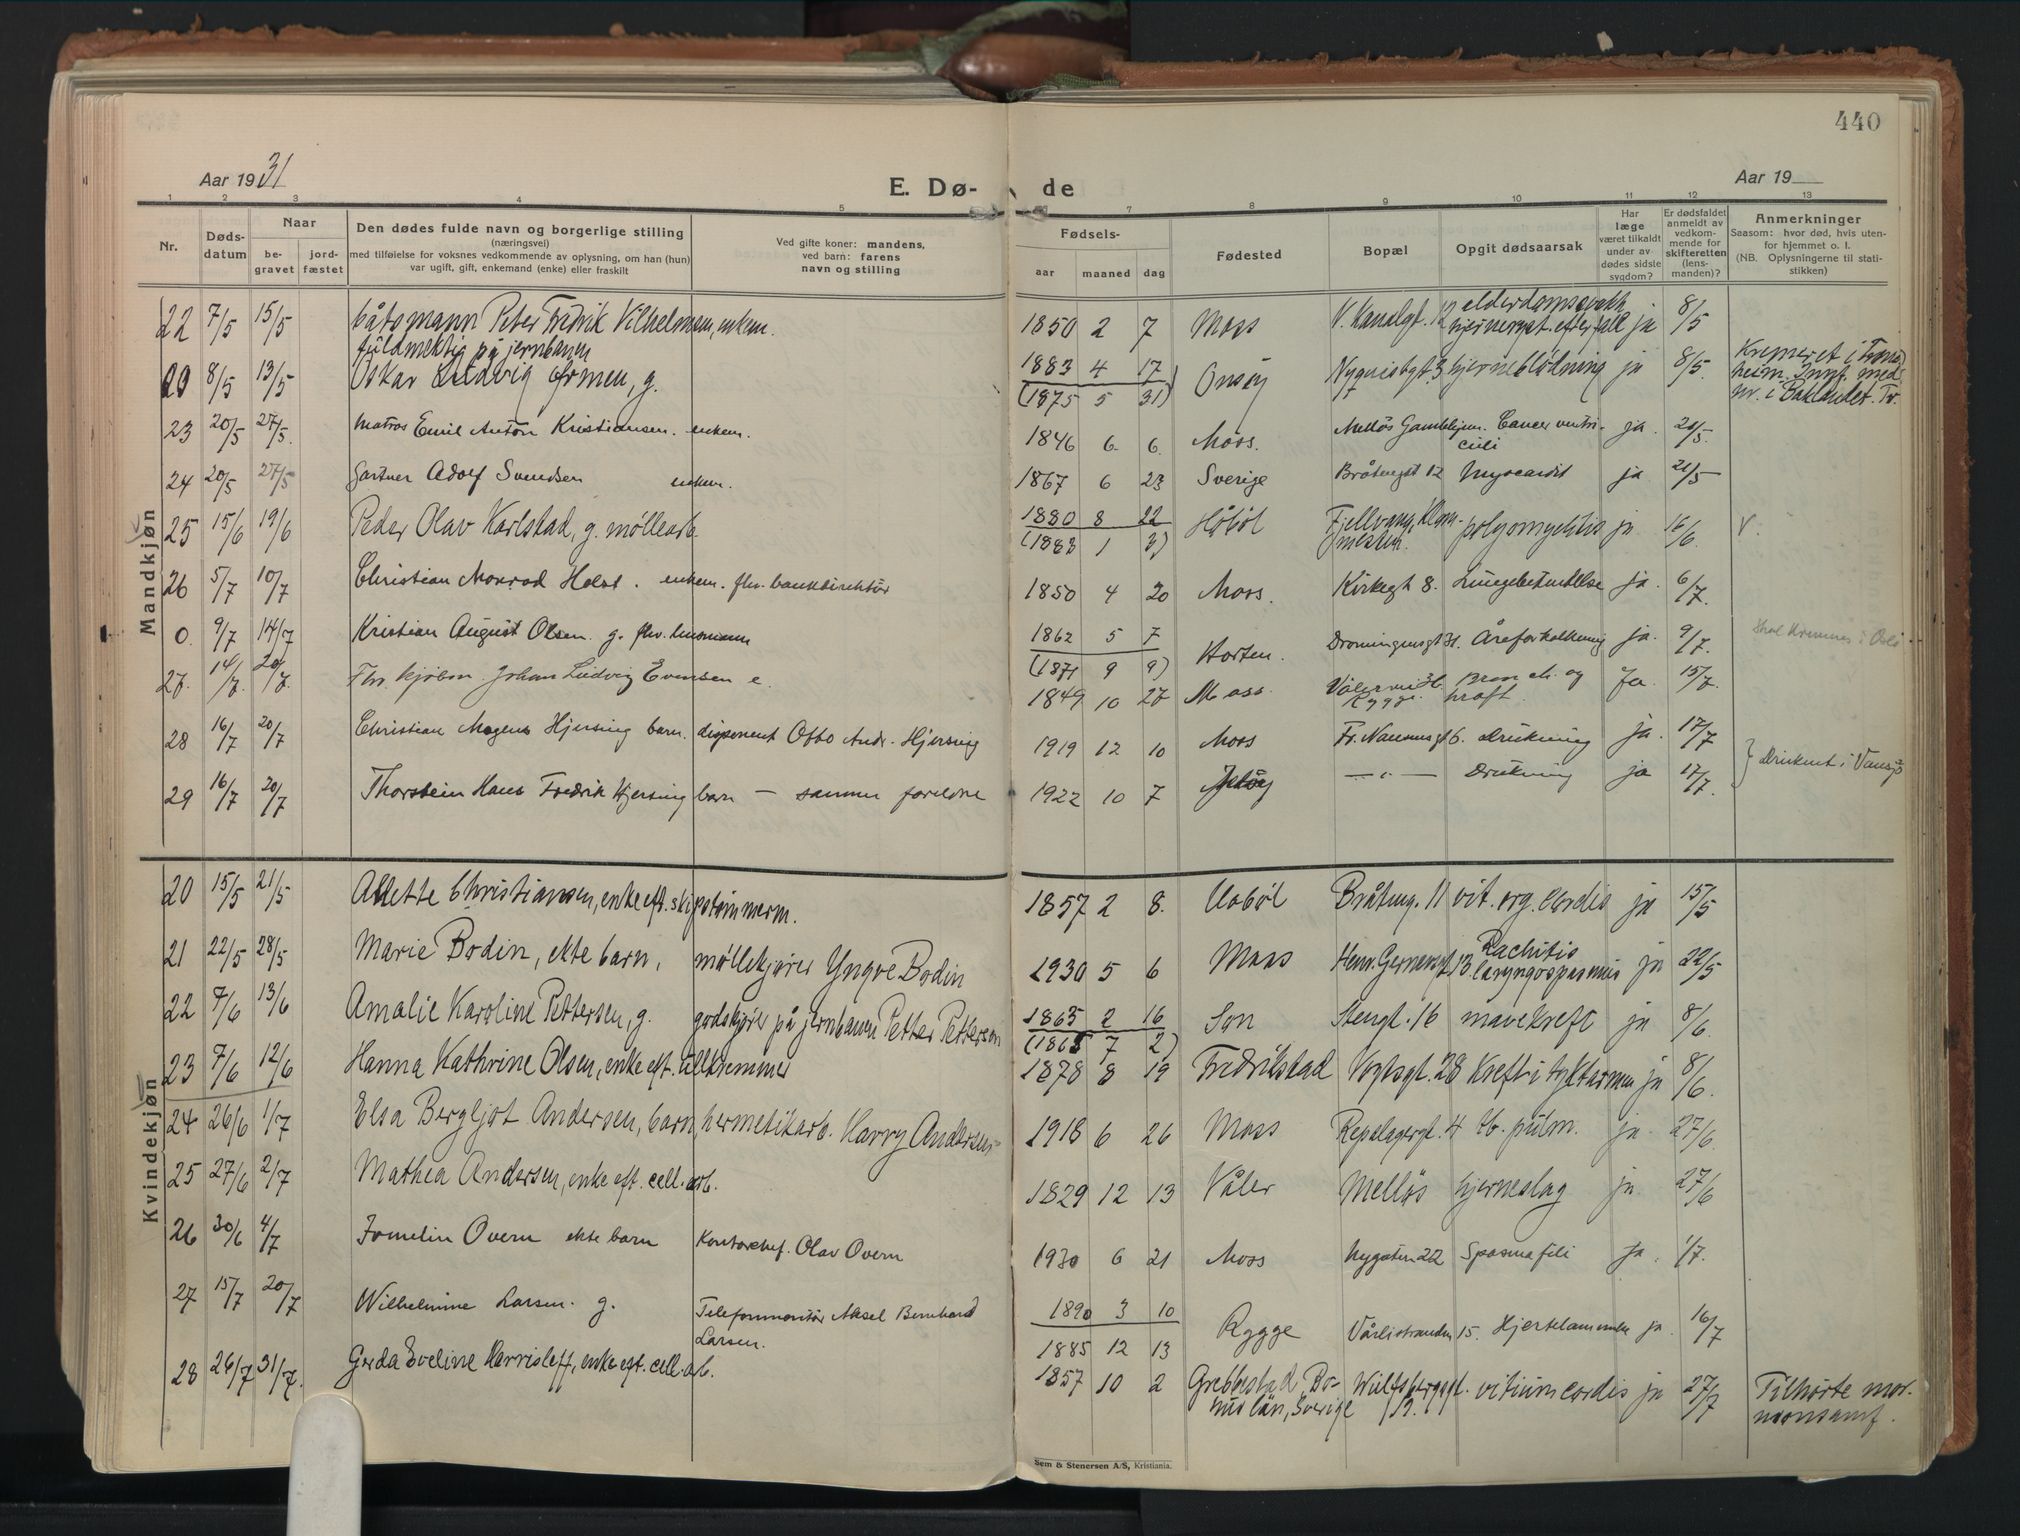 440
Aar 1931
E. Dø-
de
Aar 19
1 2 3 4 5 6 7 8 9 10 11 12 13
Nr.
Døds-
datum
Naar
be-
gravet
jord-
fæstet
Den dødes fulde navn og borgerlige stilling
(næringsvei)
med tilføielse for voksnes vedkommende av oplysning, om han (hun)
var ugift, gift, enkemand (enke) eller fraskilt
Ved gifte koner: mandens,
ved barn: farens
navn og stilling
Fødsels-
aar maaned dag
Fødested
Bopæl
Opgit dødsaarsak
Har
læge
været tilkaldt
under av-
dødes sidste
sygdom?
Er dødsfaldet
anmeldt av
vedkom-
mende for
skifteretten
(lens-
manden)?
Anmerkninger
Saasom: hvor død, hvis uten-
for hjemmet o. l.
(NB. Oplysningerne til stati-
stikken)
Mandkjøn
22 7/5 15/5 båtsmann Peter Fredrik Vilhelmsen, enkem. 1850 2 7 Moss V. Kanalgt. 12 ja 8/5
fuldmektig på jernbanen
8/5 13/5 Oskar Ludvig Ormen, g. 1883 4 17 Onsøy hjerneblødning ja 8/5. Kremeret i Trond
(1875 5 31)
23 20/5 27/5. Matros Emil Anton Kristiansen. enkem. 1846 6 6 Moss. Melløs Gamlehjem. Cancer ventri-
culi ja. 20/5.
24 20/5 27/5 Gartner Adolf Svendsen enkem. 1867 6 23 Sverige Bråtengt 12 Myocardit ja 21/5
25 15/6 19/6 Peder Olav Karlstad, g. møllearb. 1880 8 22 Håbøl ja 16/6. V.
(1883 1 3)
26 5/7 10/7 Christian Monrad Holst. enkem. fhv. bankdirektør 1850 4 20 Moss. Kirkegt 8. Lungebetendelse ja. 6/7.
0. 9/7 14/7 Kristian August Olsen. g. fhv. 1862 5 7 Horten. Dronningensgt 31. Åreforkalkning ja. 9/7. Skal kremeres i Oslo
(1871 9 9)
27. 14/7. 20/7. Fhv. kjøbm. Johan Ludvig Evensen e. 1849 10 27 Moss. Rygge. ja. 15/7.
28 16/7 20/7 Christian Mogens Hjersing barn. disponent Otto Andr. Hjersing 1919 12 10 Moss Fr. Nansensgt 6. Drukning ja. 17/7
} Druknet i Vansjø
29 16/7 20/7 Thorstein Hans Fredrik Hjersing barn — samme foreldre 1922 10 7 Jeløy — " — Drukning ja 17/7.
Kvindekjøn
20 15/5 21/5 Alette Christiansen, enke eft. skipstømmerm. 1857 2 8. Hobøl Bråteng. 11 vit. org. cordis ja 15/5
21 22/5 28/5 Marie Bodin, ekte barn, møllekjører Yngve Bodin 1930 5 6 Moss Henr. Gernersgt. 13. Rachitis
laryngospasmus ja 22/5
22 7/6 13/6 Amalie Karoline Pettersen, g. godskjører på jernbanen Petter Petterson 1865 2 16 Son Stengt. 16 mavekreft ja 8/6.
(1865 7 2)
23 7/6 12/6 Hanna Kathrine Olsen, enke eft. 1878 8 19 Fredrikstad Vogtsgt. 28 Kreft i tyktarmen ja 8/6.
24 26/6 1/7 Elsa Bergljot Andersen, barn, hermetikarb. Harry Andersen 1918 6 26 Moss Repslagergt. 4 tb. pulm. ja. 27/6.
25 27/6 2/7 Mathea Andersen, enke eft. cell. arb. 1829 12 13 Våler Melløs hjerneslag ja. 27/6
26 30/6 4/7 Jomelin Overn ekte barn Kontorchef. Olav Overn 1930 6 21 Moss Nygaten 22 Spasmofili ja. 1/7.
27 15/7 20/7 Wilhelmine Larsen. g. Telefonmontør Aksel Bernhard
Larsen. 1890 3 10 Rygge Vårlistranden 15. Hjertelammelse ja. 16/7
1885 12 13
28 26/7 31/7. Gerda Eveline Harrisleff, enke eft. cell. arb. 1857 10 2 Grebbestad, Bo-
hus län, Sverige vitium cordis ja 27/7 Tilhørte mor-
monsamf.
Sem & Stenersen A/S, Kristiania.